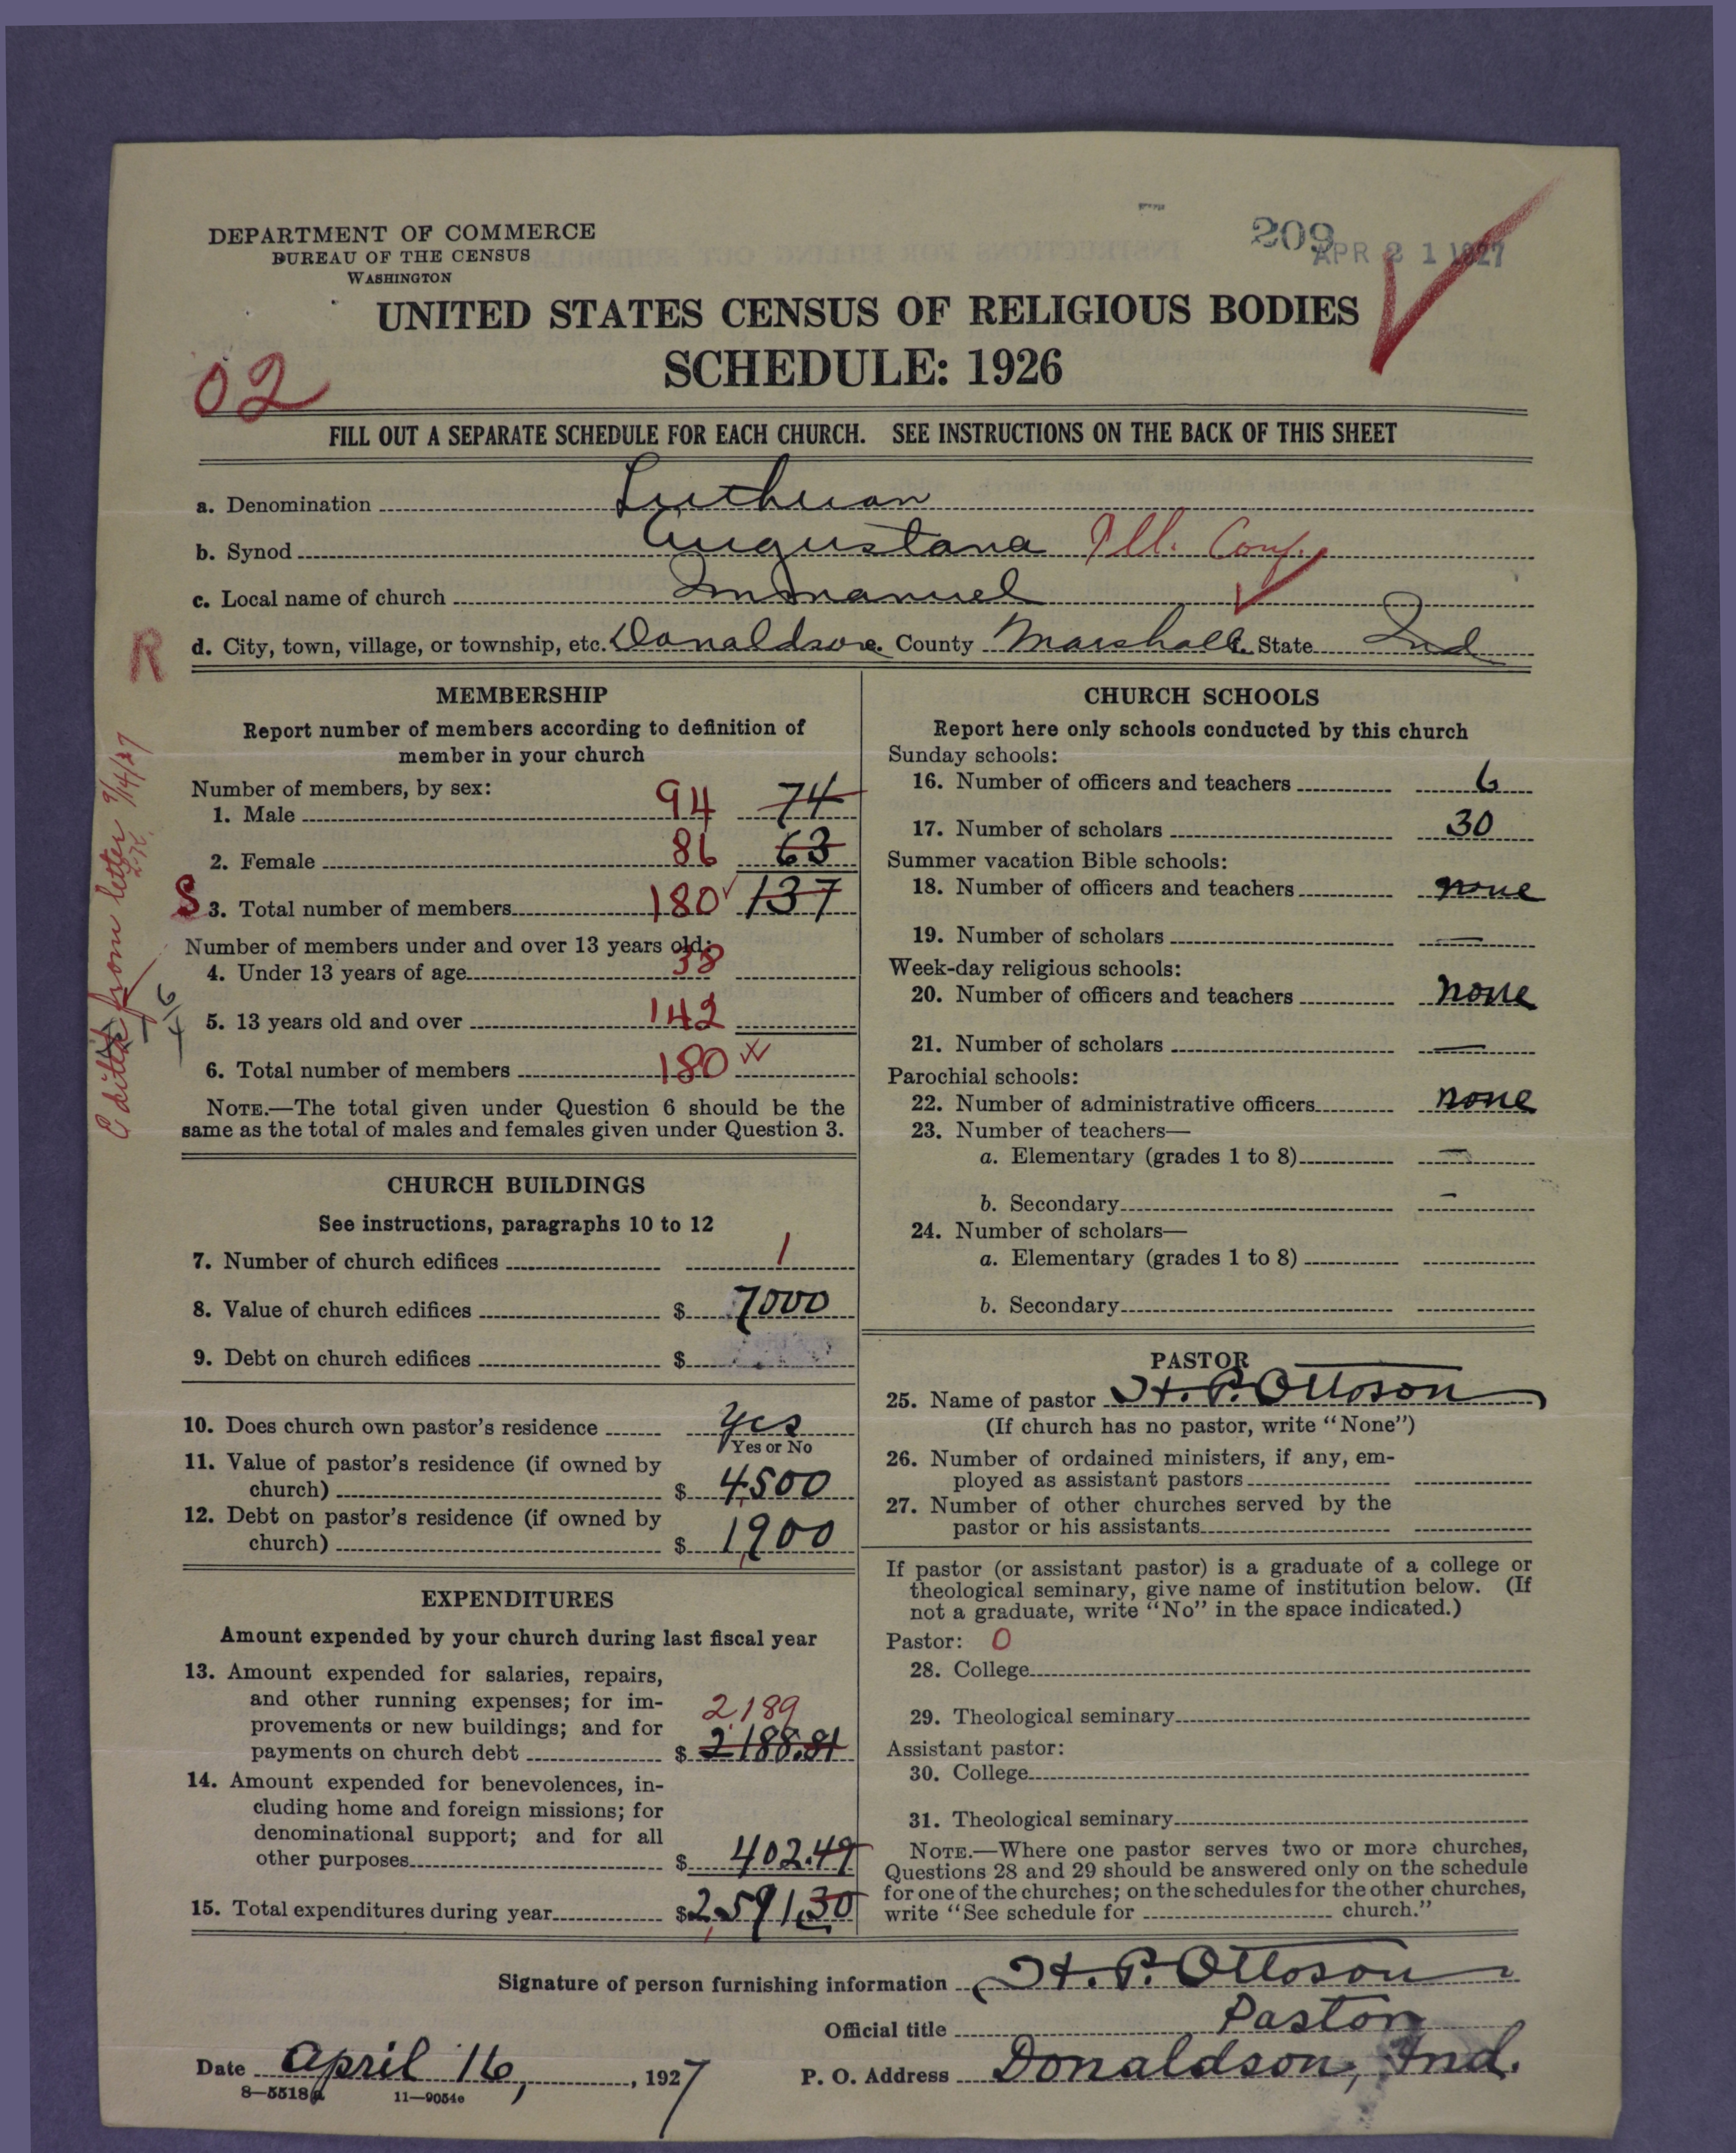 209
APR 21 1927
DEPARTMENT OF COMMERCE
BUREAU OF THE CENSUS
WASHINGTON
UNITED STATES CENSUS OF RELIGIOUS BODIES
SCHEDULE: 1926
02
FILL OUT A SEPARATE SCHEDULE FOR EACH CHURCH. SEE INSTRUCTIONS ON THE BACK OF THIS SHEET
a. Denomination Lutheran
b. Synod Augustana Ill. Conf.
c. Local name of church Immanuel
d. City, town, village, or township, etc. Donaldson County Marshall State Ind
R
from letter 9/14/27
MEMBERSHIP
Report number of members according to definition of
member in your church
Number of members, by sex:
1. Male 94 74
2. Female 86 63
S 3. Total number of members 180 137
Number of members under and over 13 years old:
4. Under 13 years of age 38
5. 13 years old and over 142
6. Total number of members 180
NOTE.—The total given under Question 6 should be the
same as the total of males and females given under Question 3.
CHURCH BUILDINGS
See instructions, paragraphs 10 to 12
7. Number of church edifices 1
8. Value of church edifices $ 7000
9. Debt on church edifices $
10. Does church own pastor's residence yes
Yes or No
11. Value of pastor's residence (if owned by
church) $ 4500
12. Debt on pastor's residence (if owned by
church) $ 1900
EXPENDITURES
Amount expended by your church during last fiscal year
13. Amount expended for salaries, repairs,
and other running expenses; for im-
provements or new buildings; and for 2189
payments on church debt $ 2188.81
14. Amount expended for benevolences, in-
cluding home and foreign missions; for
denominational support; and for all
other purposes $ 402.49
15. Total expenditures during year $2,591.30
CHURCH SCHOOLS
Report here only schools conducted by this church
Sunday schools:
16. Number of officers and teachers 6
17. Number of scholars 30
Summer vacation Bible schools:
18. Number of officers and teachers none
19. Number of scholars —
Week-day religious schools:
20. Number of officers and teachers none
21. Number of scholars —
Parochial schools:
22. Number of administrative officers none
23. Number of teachers—
a. Elementary (grades 1 to 8) —
b. Secondary —
24. Number of scholars—
a. Elementary (grades 1 to 8)
b. Secondary
PASTOR
25. Name of pastor H. P. Ottoson
(If church has no pastor, write "None")
26. Number of ordained ministers, if any, em-
ployed as assistant pastors
27. Number of other churches served by the
pastor or his assistants
If pastor (or assistant pastor) is a graduate of a college or
theological seminary, give name of institution below. (If
not a graduate, write "No" in the space indicated.)
Pastor: 0
28. College
29. Theological seminary
Assistant pastor:
30. College
31. Theological seminary
NOTE.—Where one pastor serves two or more churches,
Questions 28 and 29 should be answered only on the schedule
for one of the churches; on the schedules for the other churches,
write "See schedule for church."
Signature of person furnishing information H. P. Ottoson
Official title Pastor
Date April 16, 1927 P. O. Address Donaldson, Ind.
8—5518a 11—9054e